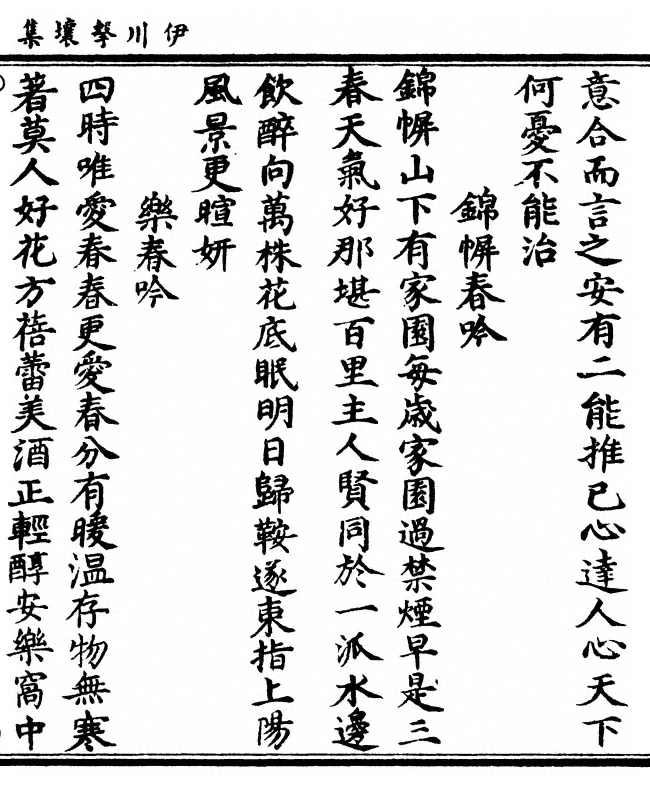 伊川擊壤集
意合而言之安有二能推已心達人心天下
何憂不能治
錦幈春吟
錦幈山下有家園每歲家園過禁煙早是三
春天氣好那堪百里主人賢同於一派水邊
飲醉向萬株花底眠明日歸鞍遂東指上陽
風景更暄妍
樂春吟
四時唯愛春春更愛春分有暖温存物無寒
著莫人好花方蓓蕾美酒正輕醇安樂窩中